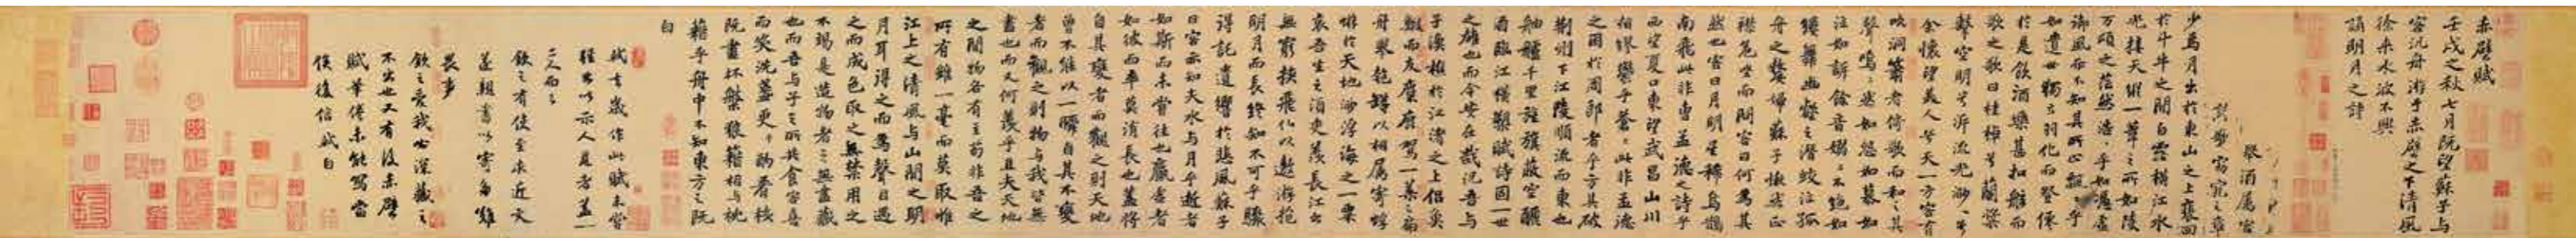 赤壁賦
壬戌之秋七月既望蘇子与
客汎舟游于赤壁之下清風
徐来水波不興
誦明月之詩
舉酒屬客
窈窕之章
少焉月出於東山之上裵回
於斗牛之間白露橫江水
光接天縱一葦之所如陵
万頃之茫然浩〻乎如馮虛
御風而不知其所止飄〻乎
如遺世獨立羽化而登僊
於是飲酒樂甚扣舷而
歌之歌曰桂棹兮蘭槳
擊空明兮泝流光渺〻兮
余懷望美人兮天一方客有
吹洞簫者倚歌而和之其
聲嗚〻然如怨如慕如
泣如訴餘音嫋〻不絕如
縷舞幽壑之潛蛟泣孤
舟之嫠婦蘇子愀然正
襟危坐而問客曰何為其
然也客曰月明星稀烏鵲
南飛此非曹孟德之詩乎
西望夏口東望武昌山川
相繆鬱乎蒼〻此非孟德
之困於周郎者乎方其破
荊州下江陵順流而東也
舳艫千里旌旗蔽空釃
酒臨江橫槊賦詩固一世
之雄也而今安在哉況吾与
子漁樵於江渚之上侶魚
鰕而友麋鹿駕一葉之扁
舟舉匏罇以相屬寄蜉
蝣於天地渺浮海之一粟
哀吾生之須臾羨長江之
無窮挾飛仙以遨游抱
明月而長終知不可乎驟
得託遺響於悲風蘇子
曰客亦知夫水与月乎逝者
如斯而未嘗往也贏虛者
如彼而卒莫消長也蓋將
自其變者而觀之則天地
曾不能以一瞬自其不變
者而觀之則物与我皆無
盡也而又何羨乎且夫天地
之間物各有主苟非吾之
所有雖一毫而莫取惟
江上之清風与山間之明
月耳得之而為聲目遇
之而成色取之無禁用之
不竭是造物者之無盡藏
也而吾与子之所共食客喜
而笑洗盞更酌肴核
既盡杯盤狼藉相与枕
藉乎舟中不知東方之既
白
軾去歲作此賦未嘗
輕出以示人見者蓋一
二人而已
欽之有使至求近文
遂親書以寄多難
畏事
欽之愛我必深藏之
不出也又有後赤壁
賦筆倦未能寫當
俟後信軾白